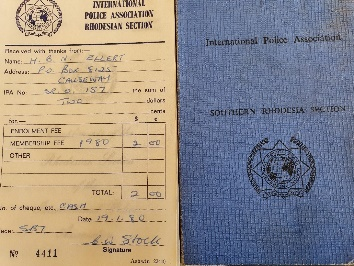 INTERNATIONAL
POLICE ASSOCIATION
RHODESIAN SECTION
Received with thanks from
Name: H. B. N. ELLERT
Address: P.O. Box
CAUSEWAY
IPA No. 157 the sum of
TWO dollars
cents
for:— $ ¢
ENROLMENT FEE
MEMBERSHIP FEE 1980 2 00
OTHER
TOTAL: 2 00
of cheque, etc. CASH
Date 19.1.80
Signature
No 4411
International Police Association
SOUTHERN RHODESIA SECTION